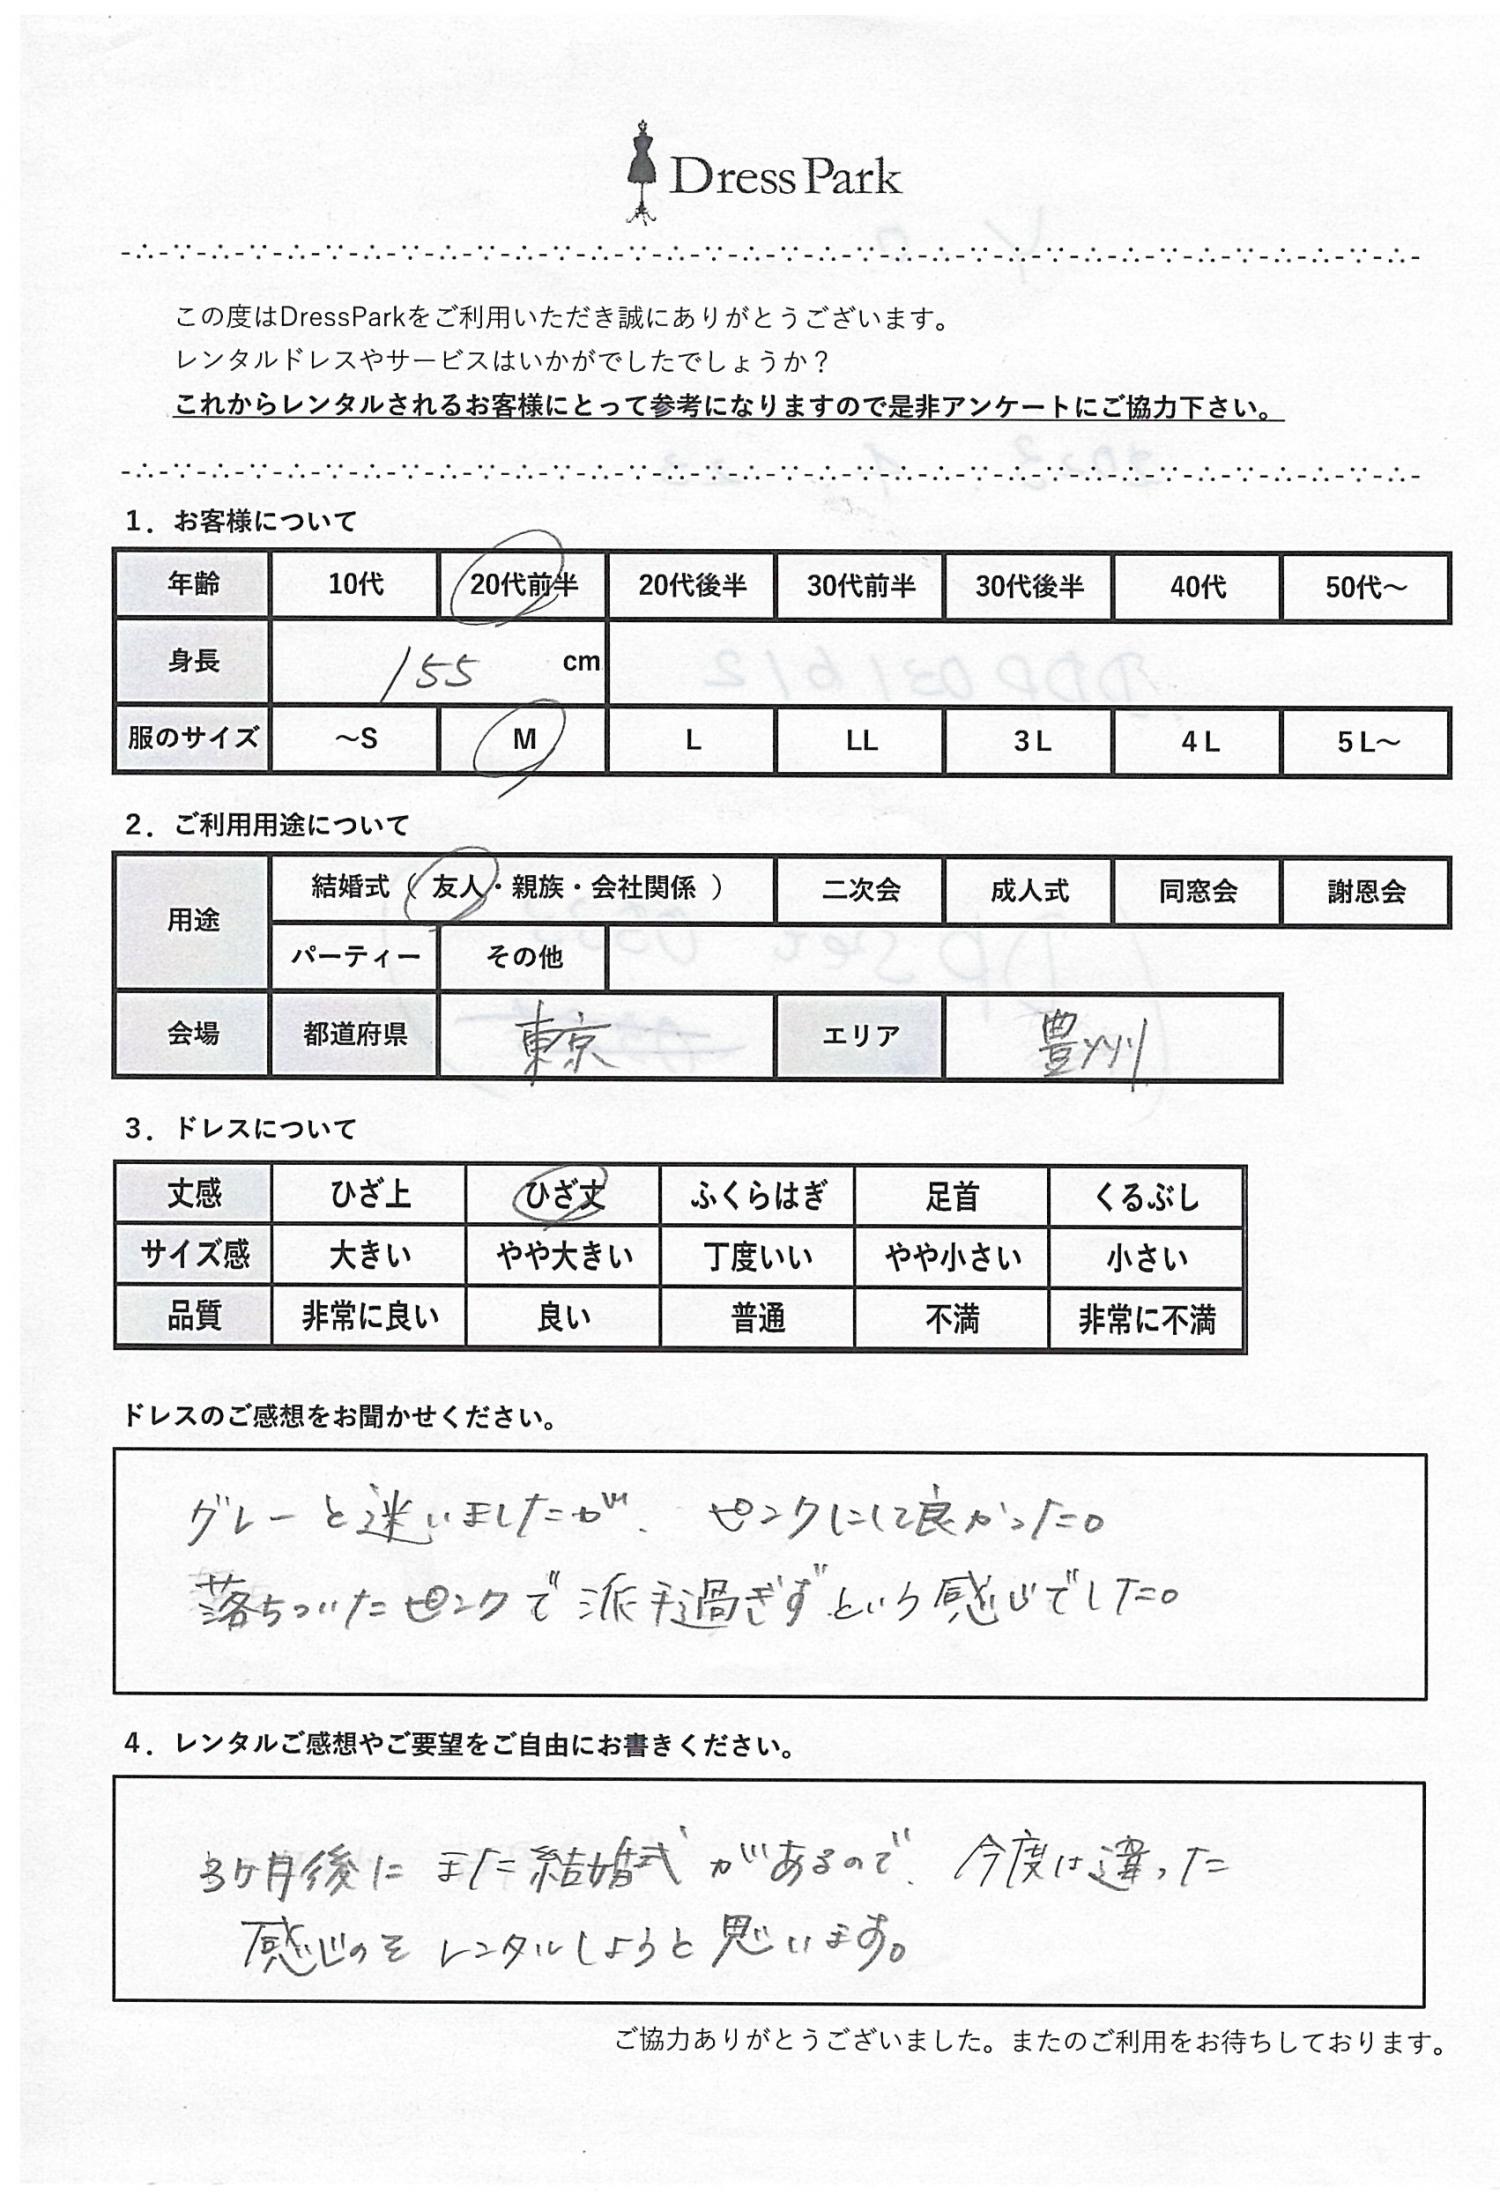 Dress Park
この度はDressParkをご利用いただき誠にありがとうございます。
レンタルドレスやサービスはいかがでしたでしょうか？
これからレンタルされるお客様にとって参考になりますので是非アンケートにご協力下さい。
1．お客様について
年齢 10代 20代前半 20代後半 30代前半 30代後半 40代 50代～
身長 155 cm
服のサイズ ～S M L LL 3L 4L 5L～
2．ご利用用途について
用途 結婚式（ 友人・親族・会社関係 ） 二次会 成人式 同窓会 謝恩会
パーティー その他
会場 都道府県 東京 エリア 豊洲
3．ドレスについて
丈感 ひざ上 ひざ丈 ふくらはぎ 足首 くるぶし
サイズ感 大きい やや大きい 丁度いい やや小さい 小さい
品質 非常に良い 良い 普通 不満 非常に不満
ドレスのご感想をお聞かせください。
グレーと迷いましたが、ピンクにして良かった。
落ちついたピンクで派手過ぎずという感じでした。
4．レンタルご感想やご要望をご自由にお書きください。
3ヶ月後にまた結婚式があるので、今度は違った
感じのをレンタルしようと思います。
ご協力ありがとうございました。またのご利用をお待ちしております。